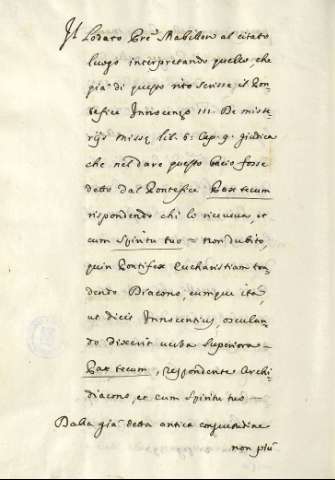 Il Lodato Pre Mabillon al citato
luogo interpretando quello, che
già di questo rito scrisse il Pon-
tefice Innocenzo III. De miste-
rijs Missę lib. 6. Cap. 9. giudica
che nel dare questo bacio fosse
detto dal Pontefice Pax tecum
rispondendo chi lo riceveva, et
cum Spiritu tuo = Non dubito,
quin Pontifex Eucharistiam tra-
dendo Diacono, eumque ita,
ut dicit Innocentius, osculan-
do dixerit verba superiora =
Pax tecum, respondente Archi-
diacono, et cum Spiritu tuo =
Dalla già detta antica consuetudine
non più